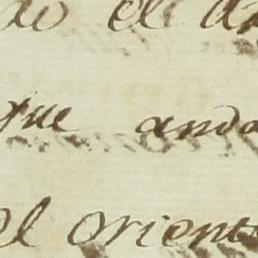 do el a
que anda
el orient